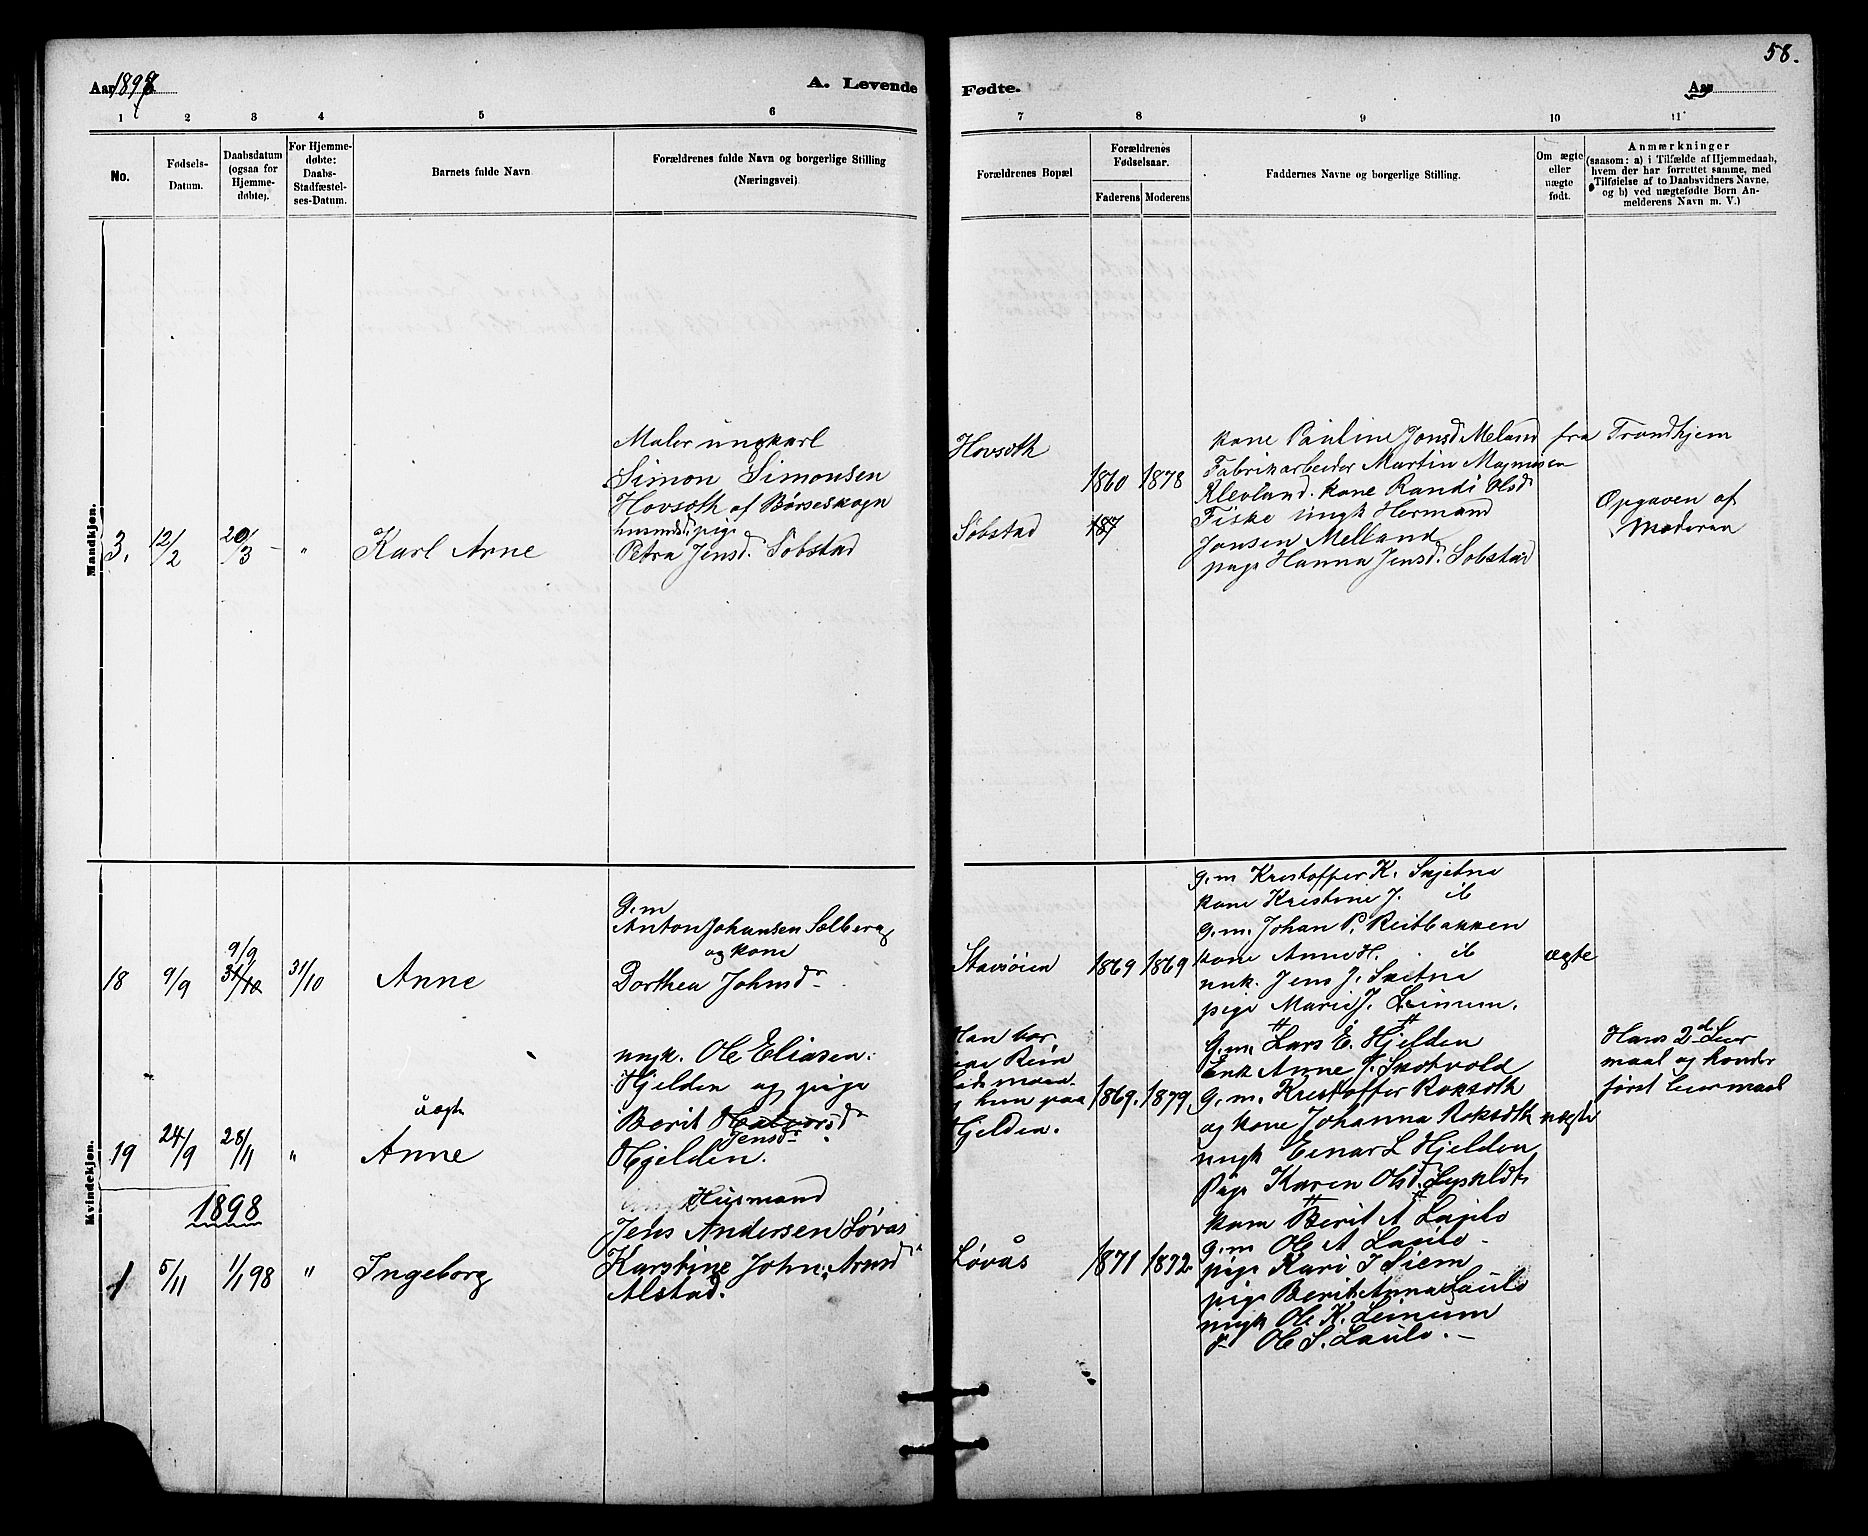 58.
Aar 1898
A. Levende
Fødte.
Aar
1 2 3 4 5 6 7 8 9 10 11
No.
Fødsels-Datum.
Daabsdatum (ogsaa for Hjemme-døbte).
For Hjemme-døbte: Daabs-Stadfæstel-ses-Datum.
Barnets fulde Navn
Forældrenes fulde Navn og borgerlige Stilling (Næringsvei)
Forældrenes Bopæl
Forældrenes Fødselsaar.
Faderens Moderens
Faddernes Navne og borgerlige Stilling.
Om ægte eller uægte født.
Anmærkninger
(saasom: a) i Tilfælde af Hjemmedaab,
hvem der har forrettet samme, med
Tilføielse af to Daabsvidners Navne,
og b) ved uægtefødte Børn An-
melderens Navn m. V.)
Mandkjøn.
3. 12/2 20/3 - " Karl Arne
Maler ungkarl
Simon Simonsen
Hovsoth af Børseskogn
pige
Petra Jensd. Sobstad
Hovsoth
Sobstad
1860 1878
187
kone Pauline Jonsd Meland fra Trondhjem
Fabrikarbeider Martin Magnusen
Klevland. kone Randi Olsd
Fiske ungk Hermand
Jonsen Melland
pige Hanna Jensd. Sobstad
Opgaven af
Moderen
Kvindekjøn.
18 9/9 9/9 31/10 31/10 Anne
g.m
Anton Johansen Solberg
og kone
Dorthea Johnsdr
Stavsøien 1869 1869
g.m Kristoffer K. Snjetne
kone Kristine J. ib
g.m. Johan P. Reitbakken
kone Anne H. ib
ungk. Jens J. Snetne
pige Marie J. Leinum.
ægte
19 24/9 28/11 " uægte
Anne
ungk. Ole Eliasen
Hjelden og pige
Berit Halvorsdr
Jensdr
Hjelden.
Han bor
hun paa
Hjelden.
1869. 1879
g.m. Lars E. Hjelden
Enk Anne J. Snotvold
g.m. Kristoffer Roksoth
og kone Johanna Roksoth uægte
ungk Einar L Hjelden
Pige Karen Olsd.
Hans 2d Leier
maal og hendes
først Leiermaal
1898
1 5/11 1/1 98 " Ingeborg
Husmand
Jens Andersen Løvås
Karstine John. Arnsdr
Alstad.
Løvås 1871 1872
kone Berit A Laulo
g.m Ole A Laulo -
pige Kari J Siem
pige Berit Anna Laulo
ungk Ole K. Leinum
Ole S. Laulo. -